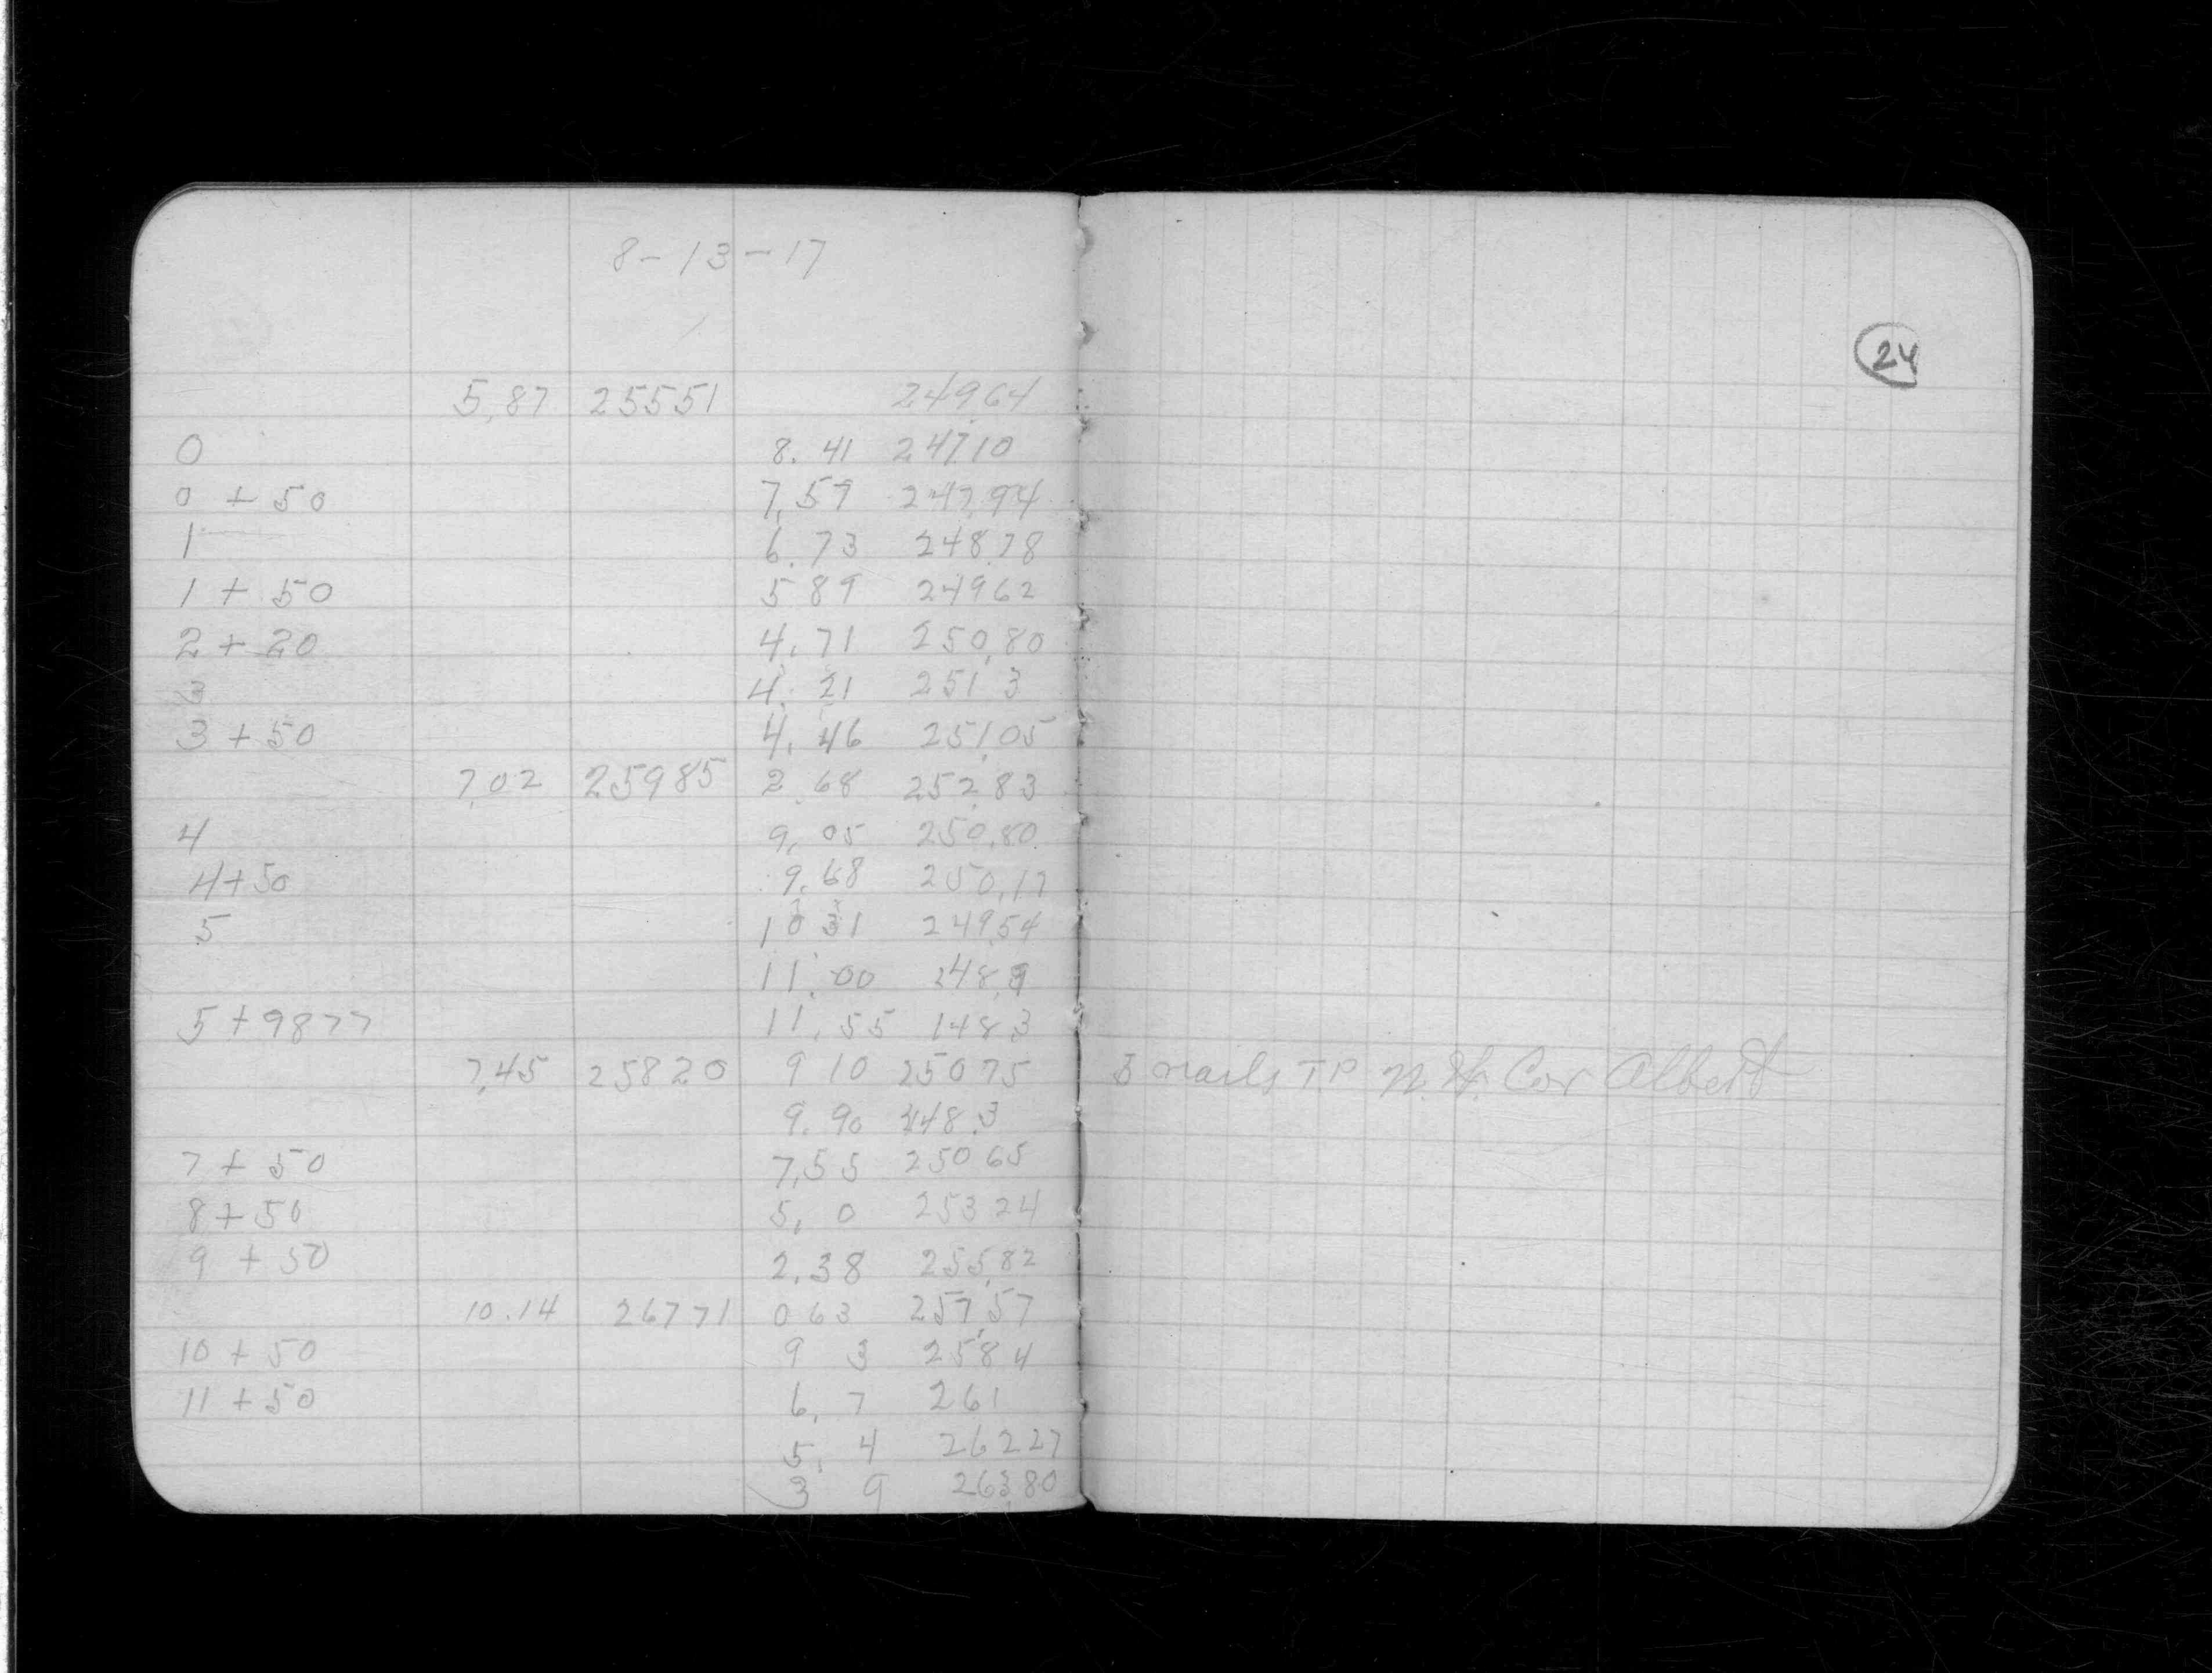 8-13-17
24
5.87 25551 249.64
0 8.41 247.10
0 + 50 7.57 247.94
1 6.73 248.78
1 + 50 5 89 24962
2 + 20 4.71 250.80
3 4.21 251 3
3 + 50 4.46 251.05
7.02 25985 2.68 252.83
4 9.05 250.80
4+50 9.68 250.17
5 10 31 249.54
11.00 248.9
5 + 9877 11.55 148.3
7.45 25820 9 10 25075 3 nails TP N.W. Cor Albert
9.90 248.3
7 + 50 7.55 250 65
8 + 50 5.0 253 24
9 + 50 2.38 255.82
10.14 26771 0 63 257.57
10 + 50 9 3 258 4
11 + 50 6.7 261
5.4 26227
3 9 263.80